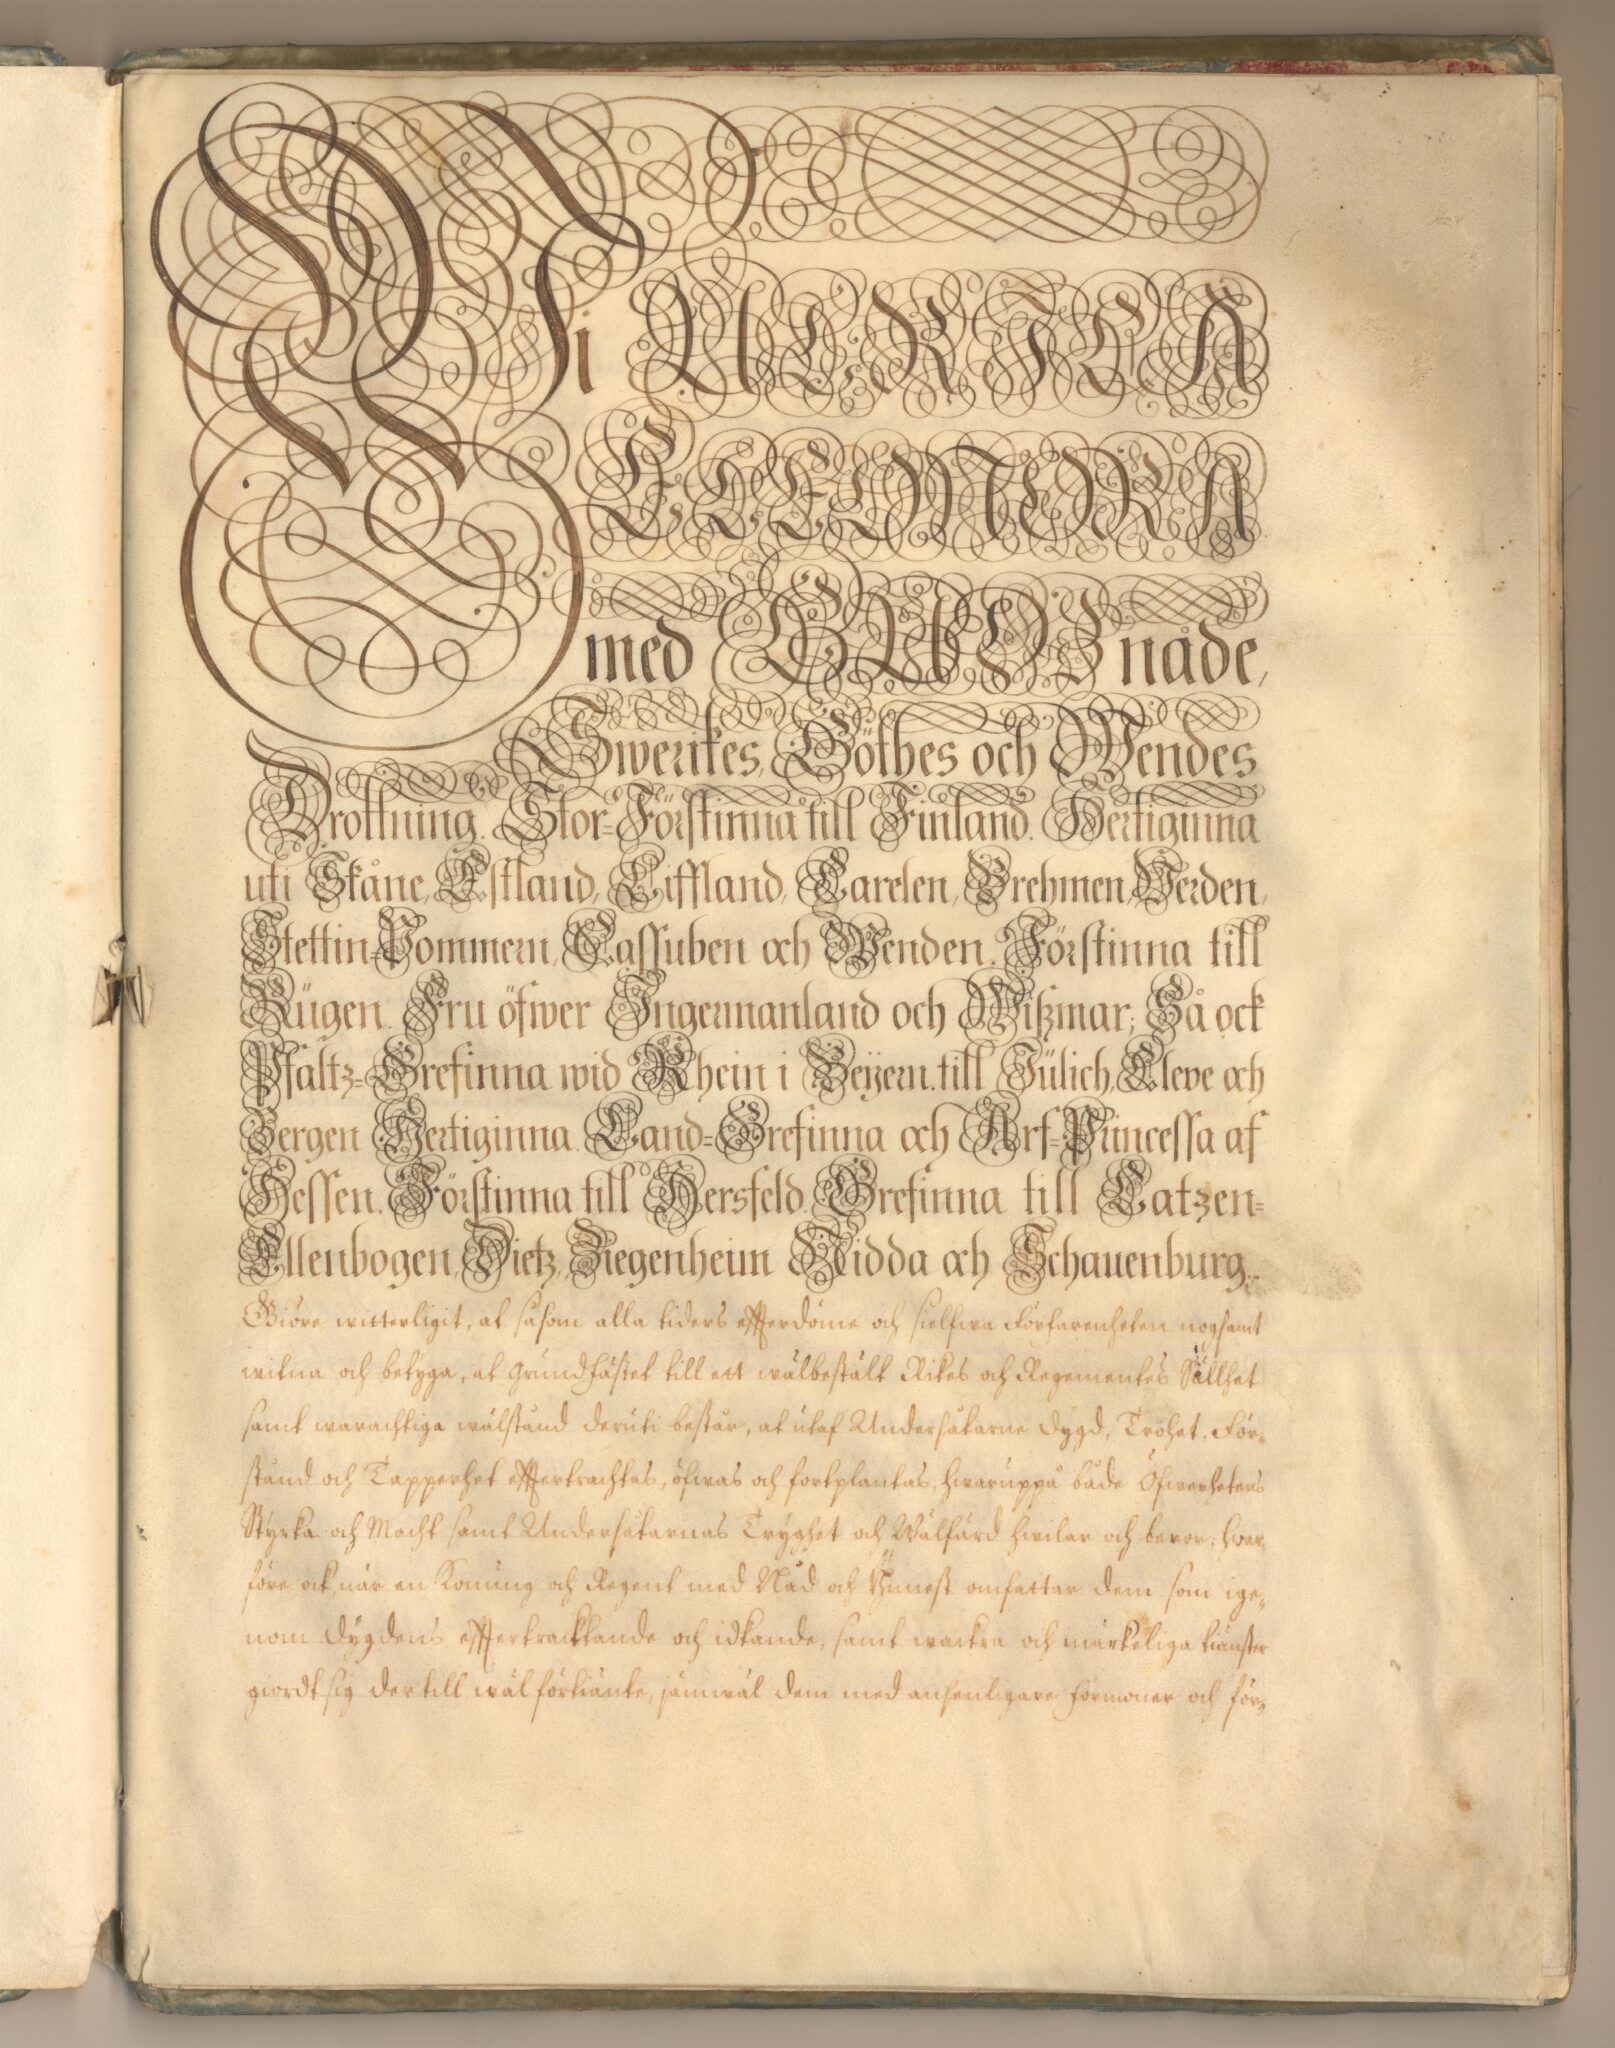 Wi ULRICA
ELEONORA
med GUDZ nåde,
Swerikes, Göthes och Wendes
Drottning. Stor-Förstinna till Finland. Hertiginna
uti Skåne, Estland, Liffland, Carelen, Brehmen, Verden,
Stettin-Pommern, Cassuben och Wenden. Förstinna till
Rügen. Fru öfwer Ingermanland och Wißmar; Så ock
Pfaltz-Grefinna wid Rhein i Beÿern. till Jülich, Cleve och
Bergen Hertiginna. Land-Grefinna och Arf-Princessa af
Hessen. Förstinna till Hersfeld. Grefinna till Catzen-
Ellenbogen, Dietz, Ziegenheim Nidda och Schauenburg,
Giöre witterligit, at såsom alla tiders effterdöme och sielfwa Förfarenheten nogsamt
witna och betyga, at grundfästet till ett wälbestält Rikes och Regementes Sällhet
samt warachtiga wälstånd deruti består, at utaf Undersåtarne dygd, Trohet, För-
stånd och Tapperhet effertrachtas, öfwas och fortplantas, hwaruppå både Öfwerhetens
Styrka och Macht samt Undersåtarnas Tryghet och Wälfärd hwilar och beror; hwar-
före ock, när en Konung och Regent med Nåd och Ynnest omfattar dem som ige-
nom dygdens efftertracktande och idkande, samt wackra och märkeliga tiänster
giordt sig dertill wäl förtiänte, jämwäl dem med ansenligare förmoner och för-